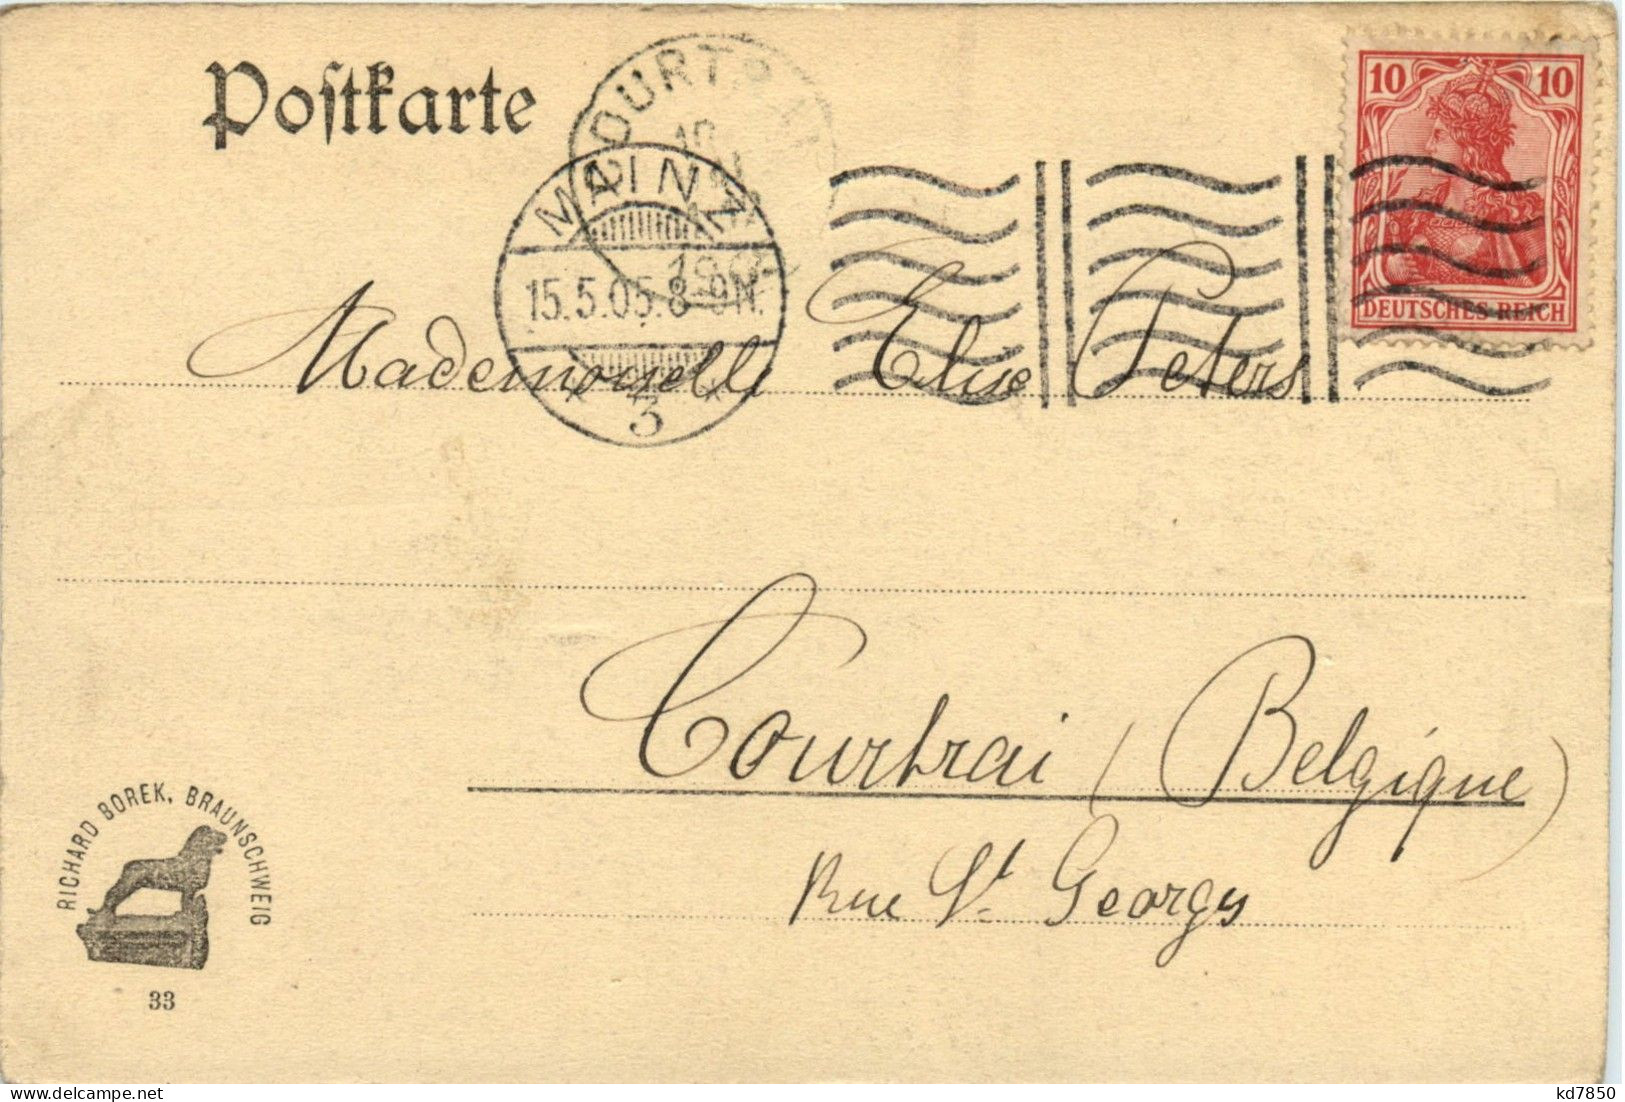 Postkarte
COURTRAI
MAINZ
15.5.05.8-9N.
3
10 10
DEUTSCHES REICH
Mademoiselle Elise Peters
Courtrai (Belgique)
Rue St. Georges
RICHARD BOREK, BRAUNSCHWEIG
33
kd7850